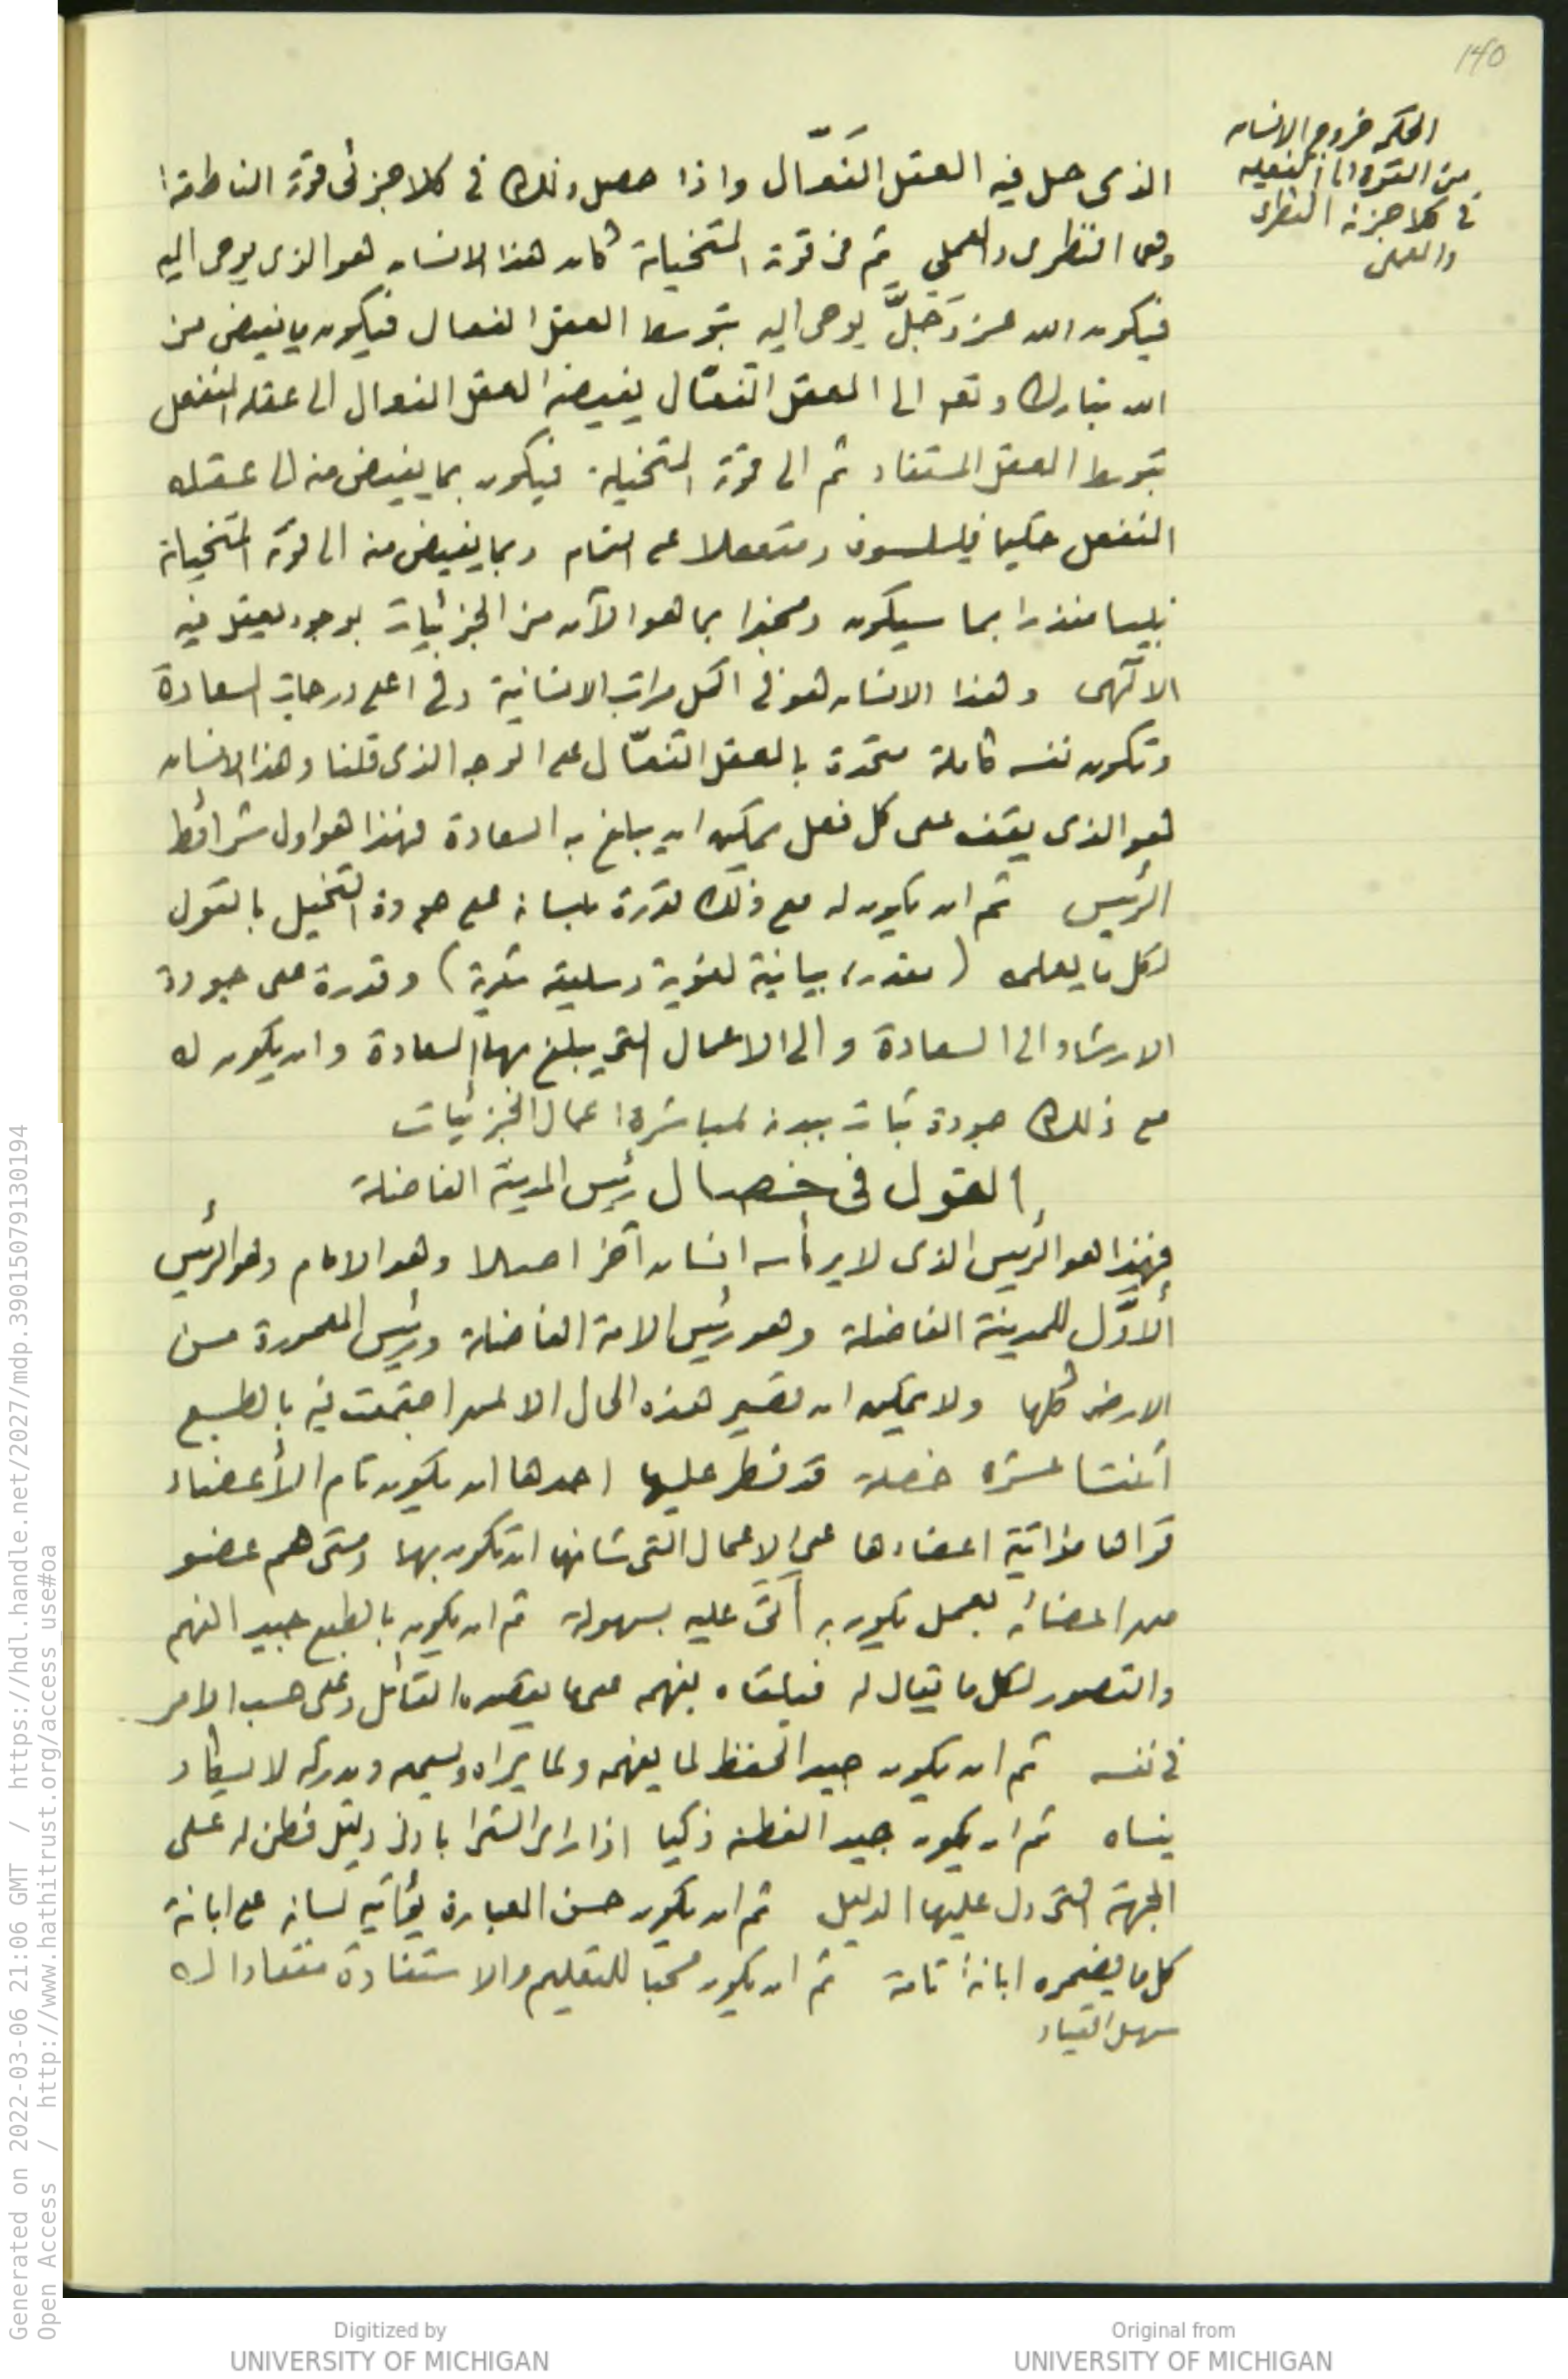 140
الحكمه خروج الانسان
من القوه الى الفعليه
فى كلا جزئه النظرى
والعملى
الذى حل فيه العقل الفَعّال واذا حصل ذلك فى كلا جزئى قوة الناطقة
وهى النظرى والعملى ثم فى قوة المتخيلة كان هذا الانسان هو الذى يوحى اليه
فيكون الله عز وَجَلَّ يوحى اليه بتوسط العقل الفعال فيكون ما يفيض من
الله تبارك وتع الى العقل الفعّال يفيضه العقل الفعال الى عقله المنفعل
بتوسط العقل المستفاد ثم الى قوة المتخيلة فيكون بما يفيض منه الى عقله
المنفعل حكيما فيلسوف ومتعقلا على التمام وبما يفيض منه الى قوة المتخيلة
نبيا منذرا بما سيكون ومخبرا بما هو الآن من الجزئيات بوجود يعقل فيه
الالٓهى وهذا الانسان هو فى اكمل مراتب الانسانية وفى اعلى درجات السعادة
وتكون نفسه كاملة متحدة بالعقل الفعّال على الوجه الذى قلنا وهذا الانسان
هو الذى يقف على كل فعل يمكن ان يبلغ به السعادة فهذا هو اول شرائط
الرئيس ثم ان يكون له مع ذلك قدرة بلسانه على جودة التخيل بالقول
لكل ما يعلمه ( بيانية لغوية وسليقه ) وقدرة على جودة
الارشاد الى السعادة والى الاعمال التى يبلغ بها السعادة وان يكون له
مع ذلك جودة ثبات ببدنه لمباشرة اعمال الجزئيات
القول فى خصال رئيس المدينة الفاضلة
فهذا هو الرئيس الذى لا يرأسه انسان آخر اصلا وهو الامام وهو الرئيس
الأوَّل للمدينة الفاضلة وهو رئيس الامة الفاضلة ورئيس المعمورة من
الارض كلها ولا يمكن ان تصير هذه الحال الا لمن اجتمعت فيه بالطبع
اثنتا عشره خصلة قد فطر عليها احدها ان يكون تام الأعضاء
قواها مؤاتية اعضاءها على الاعمال التى شانها ان تكون بها ومتى هم عضو
من اعضائه بعمل يكون به اتى عليه بسهولة ثم ان يكون بالطبع جيد الفهم
والتصور لكل ما يقال له فيلقاه بفهمه على ما يقصده القائل وعلى حسب الامر
فى نفسه ثم ان يكون جيد الحفظ لما يفهمه ولما يراه ويسمعه ويدركه لا يكاد
ينساه ثم ان يكون جيد الفطنه ذكيا اذا راى الشئ بادنى دليل فطن له على
الجهة التى دل عليها الدليل ثم ان يكون حسن العبارة يؤاتيه لسانه على ابانة
كل ما يضمره ابانةً تامة ثم ان يكون محبا للتعليم والاستفادة منقادا له
سهل القياد
Generated on 2022-03-06 21:06 GMT / https://hdl.handle.net/2027/mdp.39015079130194
Open Access / http://www.hathitrust.org/access_use#oa
Digitized by
UNIVERSITY OF MICHIGAN
Original from
UNIVERSITY OF MICHIGAN